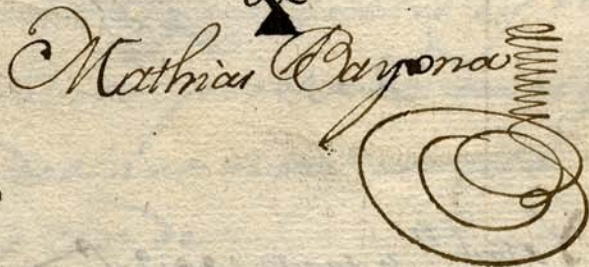 Mathias Bayona